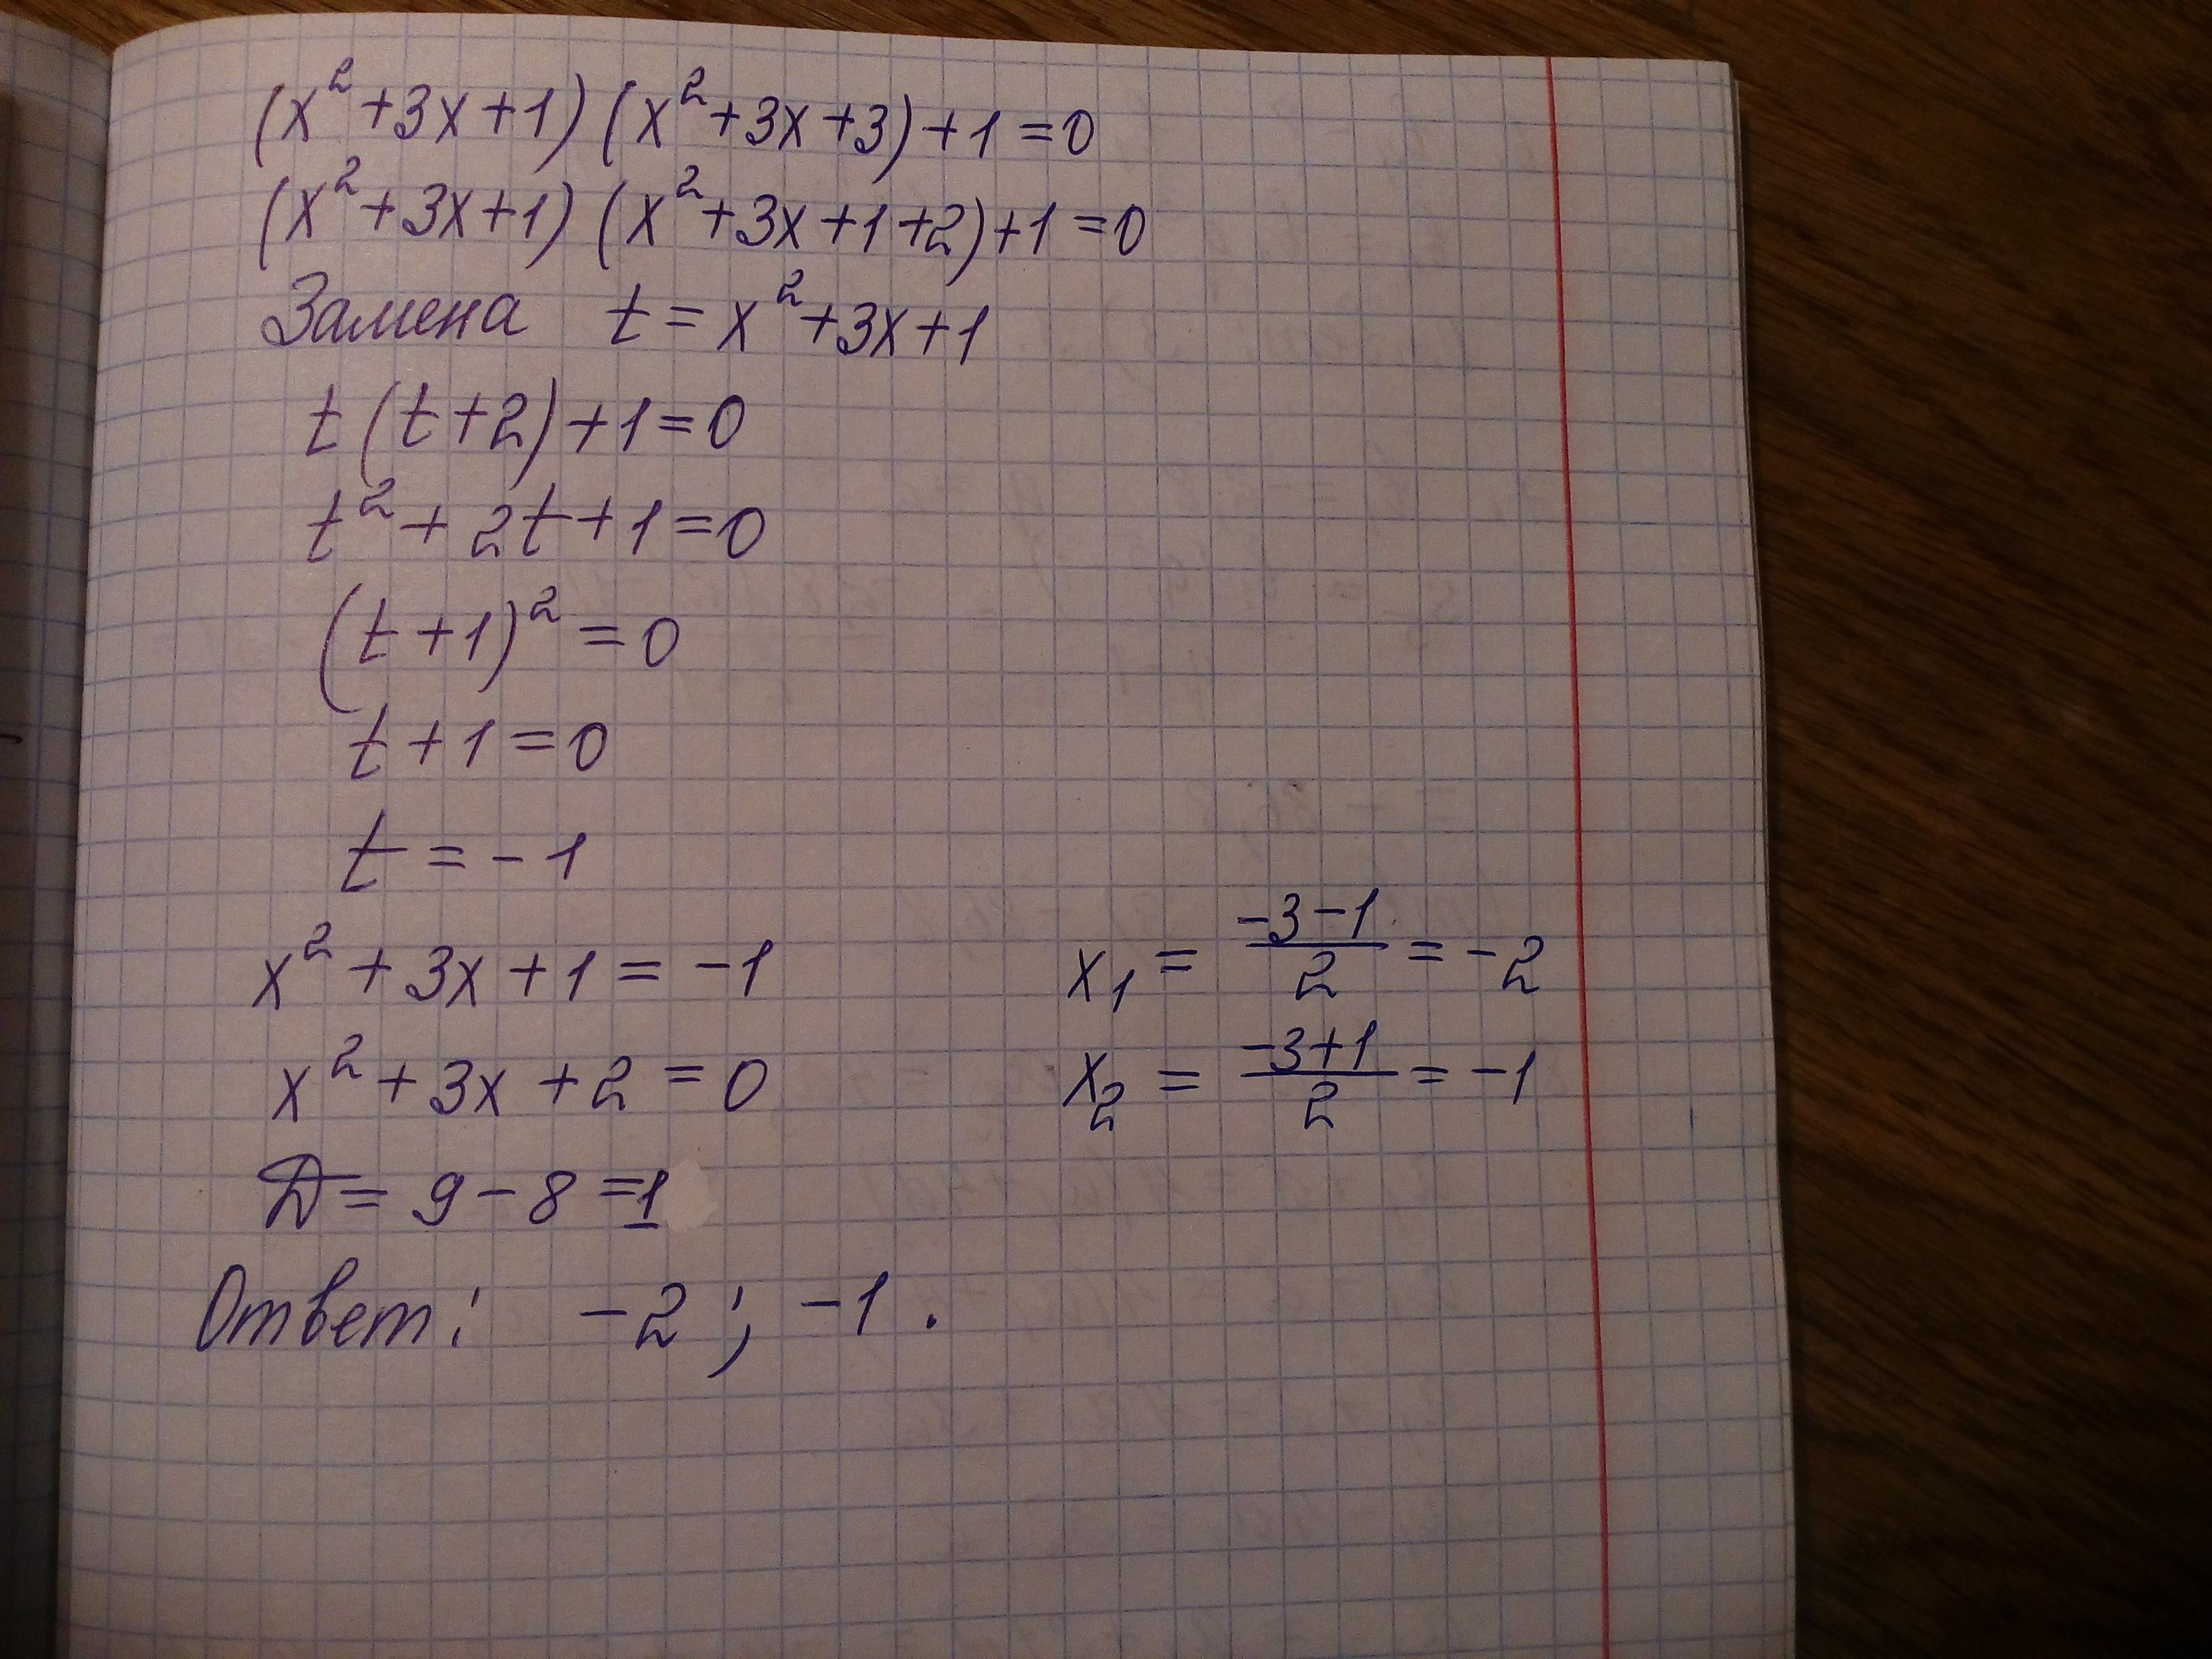 (x²+3x+1)(x²+3x+3)+1=0
(x²+3x+1)(x²+3x+1+2)+1=0
Замена t=x²+3x+1
t(t+2)+1=0
t²+2t+1=0
(t+1)²=0
t+1=0
t=-1
x²+3x+1=-1
x²+3x+2=0
D=9-8=1
x₁=(-3-1)/2=-2
x₂=(-3+1)/2=-1
Ответ: -2; -1.